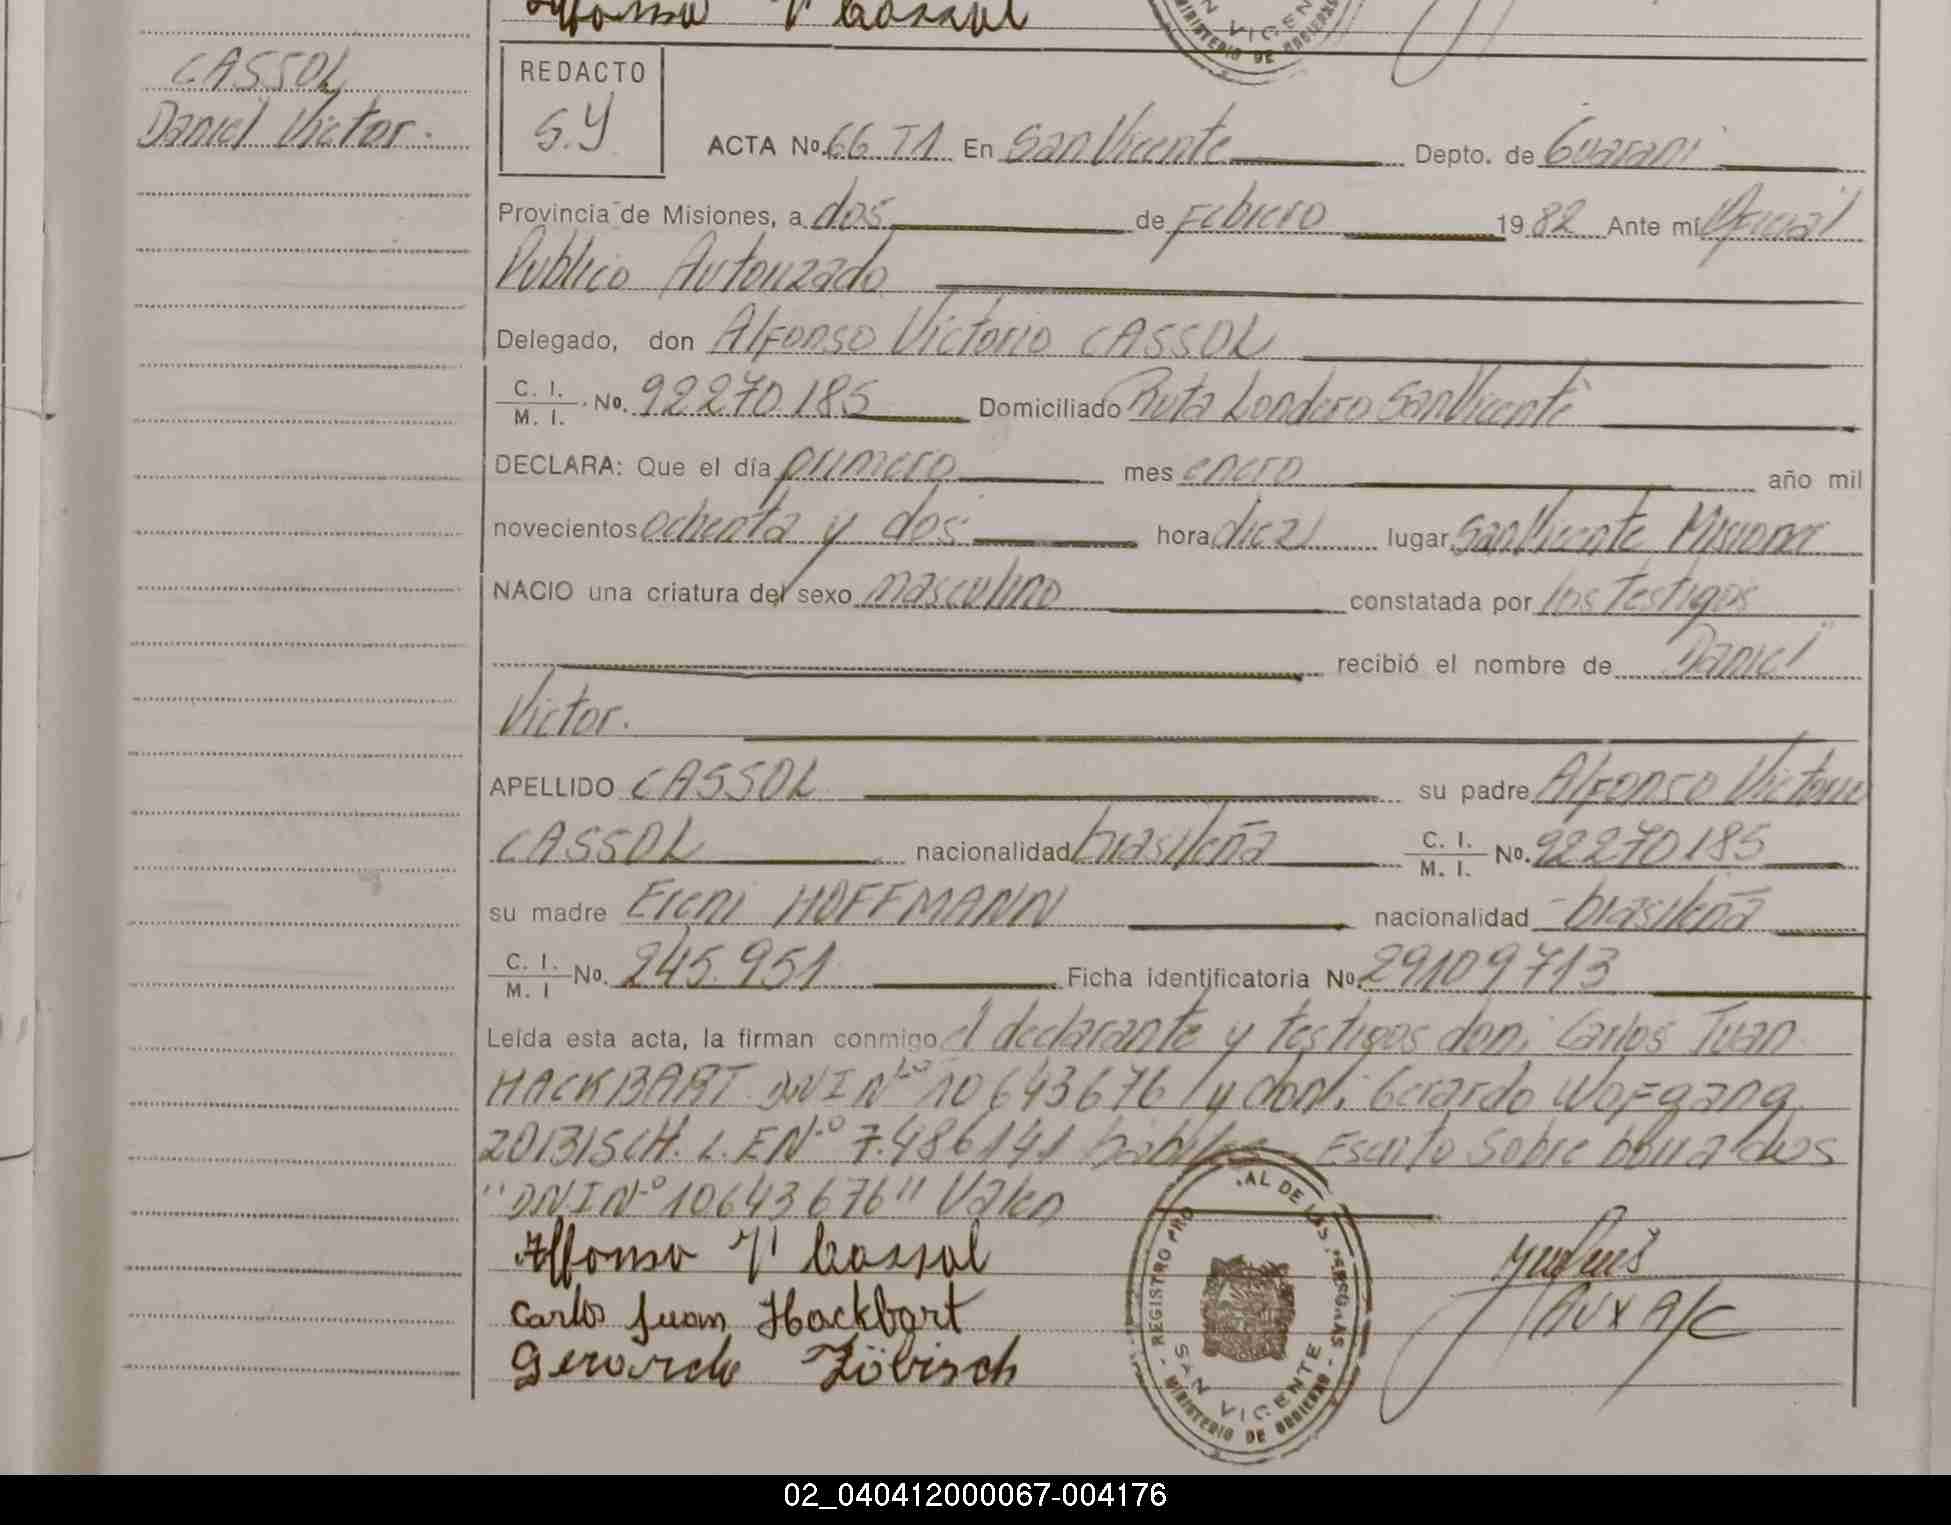 Alfonso V Cassol
CASSOL
Daniel Victor.
REDACTO
S.Y
ACTA No. 66 T1 En San Vicente Depto. de Guarani
Provincia de Misiones, a dos de Febrero 1982 Ante mí Oficial
Publico Autorizado
Delegado, don Alfonso Victorio CASSOL
C. I. / M. I. No. 92270185 Domiciliado Ruta Londero San Vicente
DECLARA: Que el día primero mes enero año mil
novecientos ochenta y dos hora diez lugar San Vicente Misiones
NACIO una criatura del sexo masculino constatada por los testigos
recibió el nombre de Daniel
Victor.
APELLIDO CASSOL su padre Alfonso Victorio
CASSOL nacionalidad brasileña C. I. / M. I. No. 92270185
su madre Ereni HOFFMANN nacionalidad brasileña
C. I. / M. I No. 245.951 Ficha identificatoria No. 29109713
Leída esta acta, la firman conmigo el declarante y testigos don: Carlos Juan
HACKBART DNI Nº 10643676 y don: Gerardo Wofgang
ZOBISCH. L.E Nº 7.486141 hábiles. Escrito sobre borrados
"DNI Nº 10643676" Valen
Alfonso V Cassol
Carlos Juan Hackbart
Gerardo Zöbisch
AUX A/C
REGISTRO PRO AL DE LAS PERSONAS
SAN VICENTE
MINISTERIO DE GOBIERNO
02_040412000067-004176